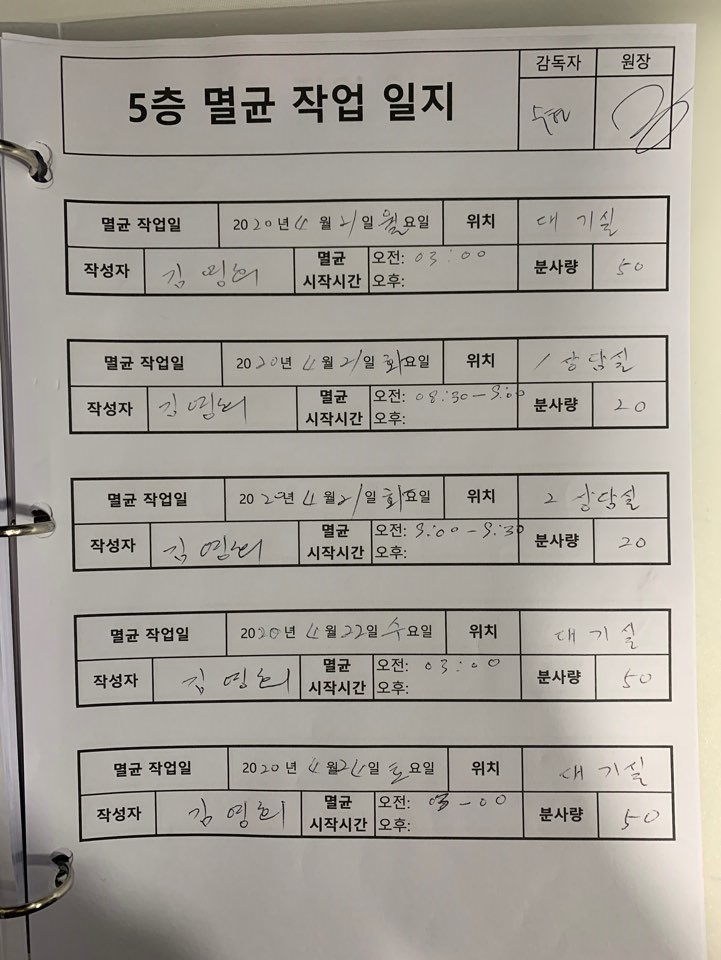 감독자 원장
5층 멸균 작업 일지
멸균 작업일 2020년 4월 21일 월요일 위치 대기실
작성자 김영희 멸균 시작시간 오전: 03:00 분사량 50
오후:
멸균 작업일 2020년 4월 21일 화요일 위치 1 상담실
작성자 김영희 멸균 시작시간 오전: 08:30-9:00 분사량 20
오후:
멸균 작업일 2020년 4월 21일 화요일 위치 2 상담실
작성자 김영희 멸균 시작시간 오전: 9:00-9:30 분사량 20
오후:
멸균 작업일 2020년 4월 22일 수요일 위치 대기실
작성자 김영희 멸균 시작시간 오전: 03:00 분사량 50
오후:
멸균 작업일 2020년 4월 24일 토요일 위치 대기실
작성자 김영희 멸균 시작시간 오전: 03-00 분사량 50
오후: